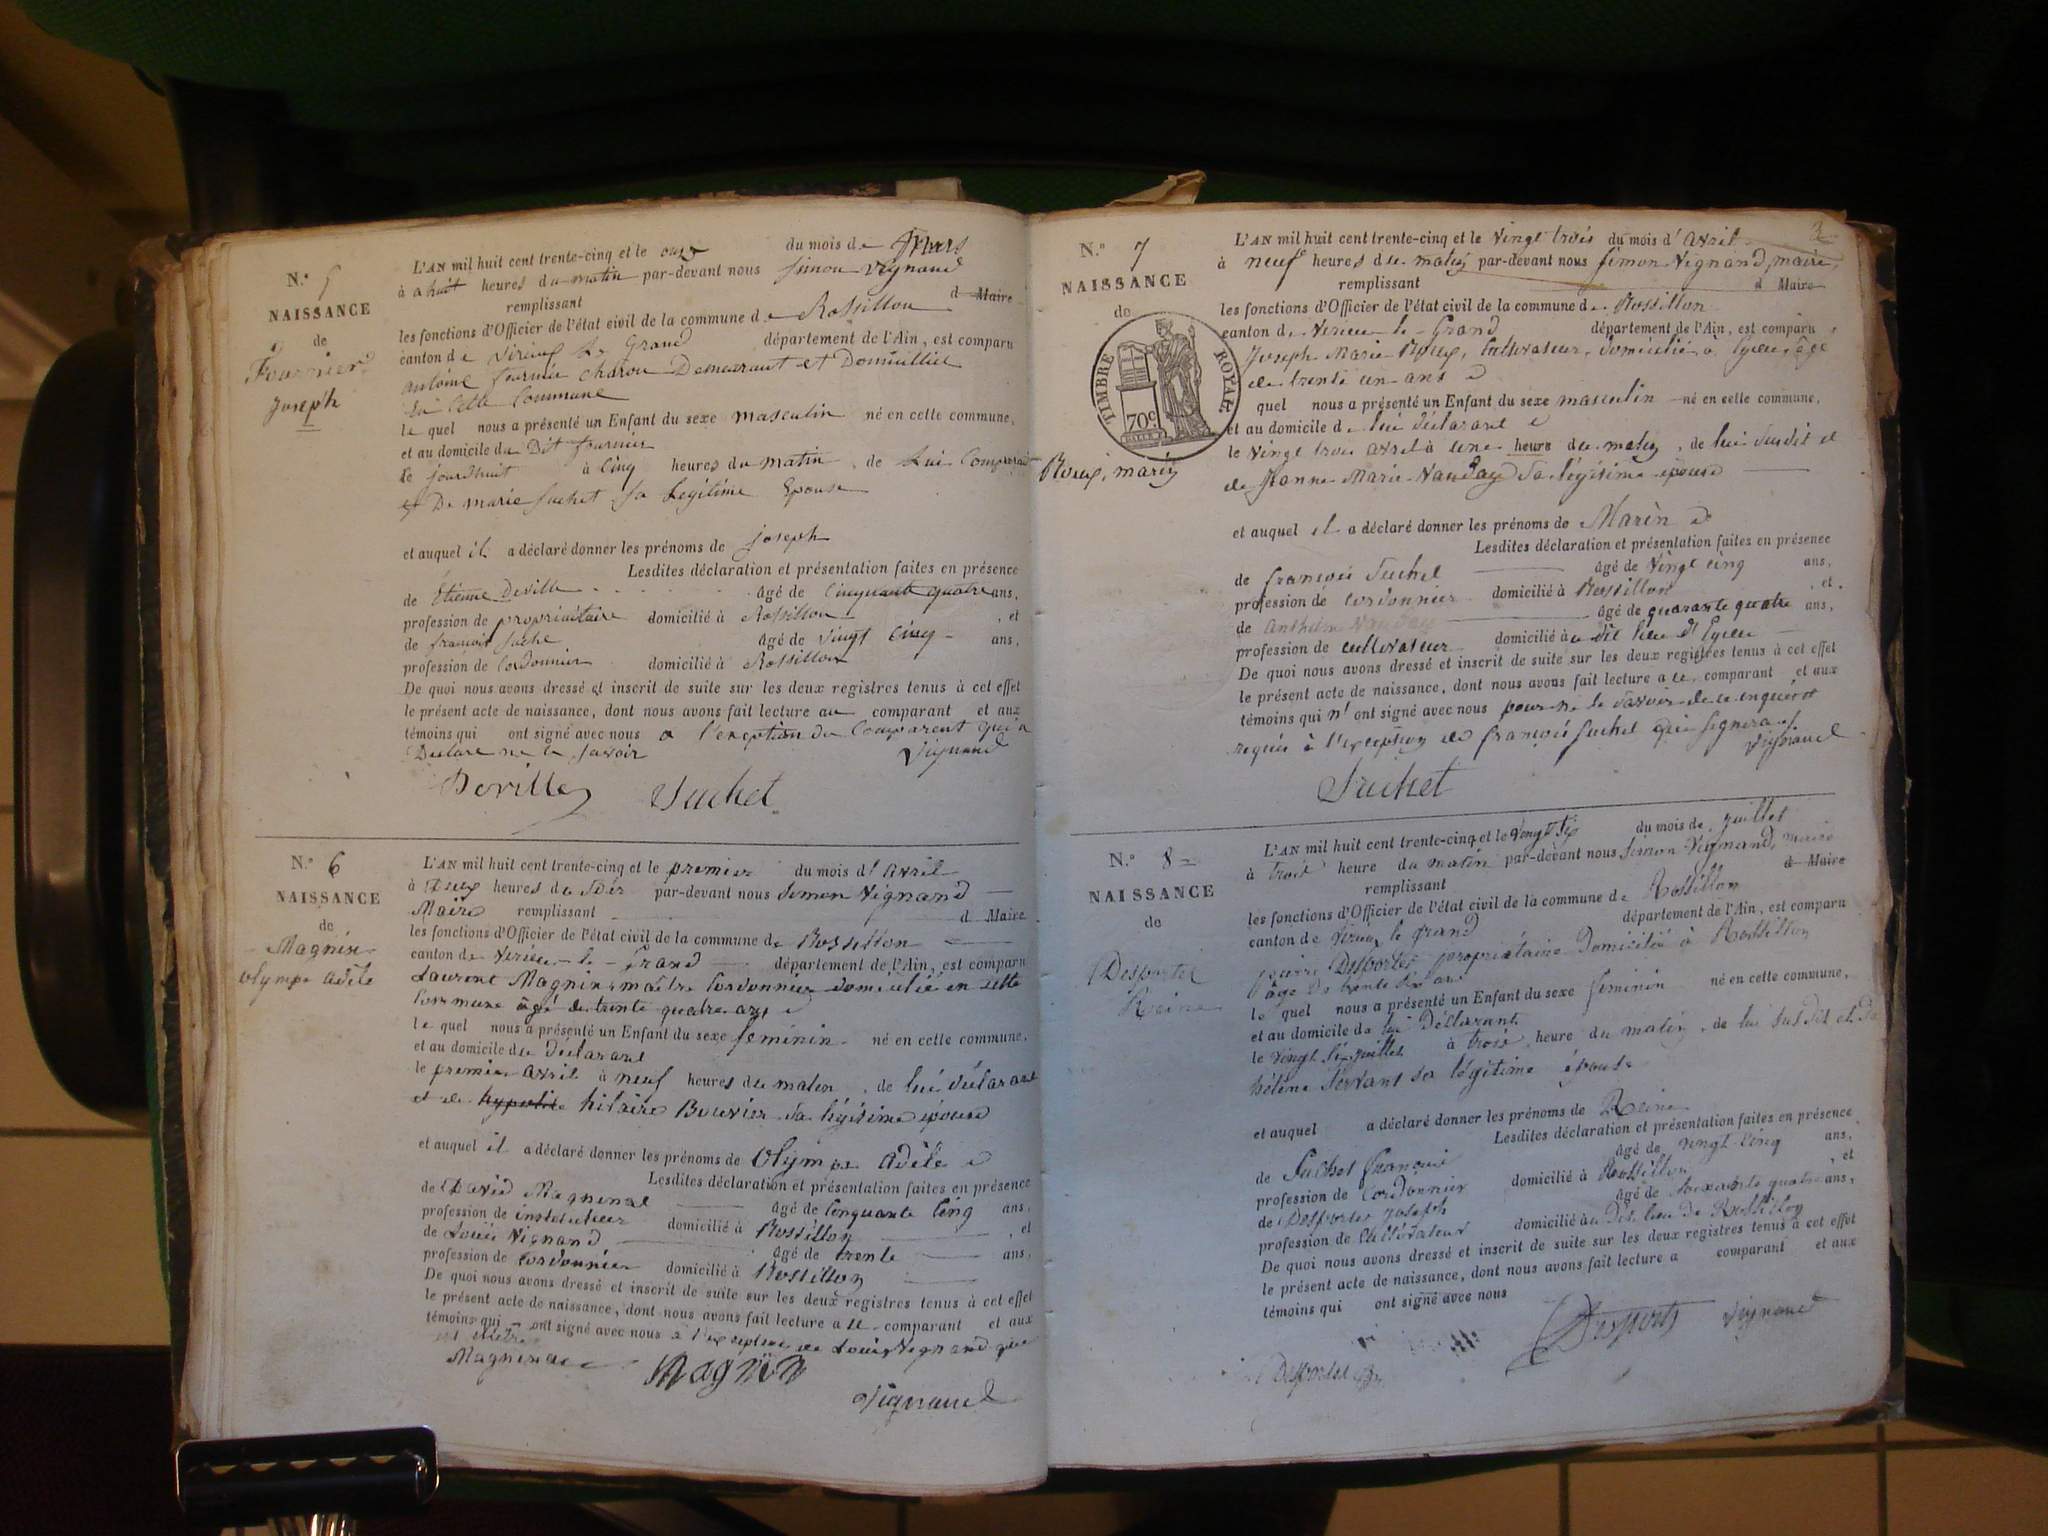 N.° 5
NAISSANCE
de
Fournier
Joseph
L'AN mil huit cent trente-cinq et le onze du mois de mars
à huit heures du matin par-devant nous Simon Vignand
remplissant d Maire
les fonctions d'Officier de l'état civil de la commune de Rossillon
canton de Virieux Le Grand département de l'Ain, est comparu
antoine fournier charon Demeurant et Domicilié
en Cette Commune
le quel nous a présenté un Enfant du sexe masculin né en cette commune,
et au domicile du Dit fournier
le jourdhuit à Cinq heures du matin, de Lui Comparant
et De marie suchet sa Legitime Epouse
et auquel il a déclaré donner les prénoms de joseph
Lesdites déclaration et présentation faites en présence
de Etienne Deville âgé de Cinquante quatre ans,
profession de propriétaire domicilié à Rossillon, et
de francois suche âgé de vingt Cinq ans,
profession de Cordonnier domicilié à Rossillon
De quoi nous avons dressé et inscrit de suite sur les deux registres tenus à cet effet
le présent acte de naissance, dont nous avons fait lecture au comparant et aux
témoins qui ont signé avec nous a l'exception du Comparent qui a
Declare ne le savoir
Vignand
Deville Suchet
N.° 6
NAISSANCE
de
Magnin
olympe adèle
L'AN mil huit cent trente-cinq et le premier du mois d'avril
à Deux heures du soir par-devant nous Simon Vignand
Maire remplissant d Maire
les fonctions d'Officier de l'état civil de la commune de Rossillon
canton de Virieu-le-Grand département de l'Ain, est comparu
Laurent Magnin maître Cordonnier domicilié en cette
Commune âgé de trente quatre ans
le quel nous a présenté un Enfant du sexe féminin né en cette commune,
et au domicile du Déclarant
le premier avril à neuf heures du matin, de lui déclarant
et de hypolite hilaire Bouvier sa légitime épouse
et auquel il a déclaré donner les prénoms de Olympe adèle
Lesdites déclaration et présentation faites en présence
de David Magninat âgé de Cinquante Cinq ans,
profession de instituteur domicilié à Rossillon, et
de Louis Vignand âgé de trente ans,
profession de Cordonnier domicilié à Rossillon
De quoi nous avons dressé et inscrit de suite sur les deux registres tenus à cet effet
le présent acte de naissance, dont nous avons fait lecture a le comparant et aux
témoins qui ont signé avec nous à l'exception de Louis Vignand
Magninat Magnin
Vignand
N.° 7
NAISSANCE
de
TIMBRE ROYAL
70c
Roux, marin
L'AN mil huit cent trente-cinq et le vingt trois du mois d'avril
à neuf heures du matin par-devant nous Simon Vignand, maire,
remplissant d Maire
les fonctions d'Officier de l'état civil de la commune de Rossillon
canton de Virieu-le-Grand département de l'Ain, est comparu
Joseph Marie Roux, Cultivateur, domicilié à Eyeu, âgé
de trente un ans
quel nous a présenté un Enfant du sexe masculin né en cette commune,
et au domicile de lui déclarant
le vingt trois avril à une heure du matin, de lui susdit et
de Jeanne Marie Vauday sa légitime épouse
et auquel il a déclaré donner les prénoms de Marin
Lesdites déclaration et présentation faites en présence
de françois Suchet âgé de vingt cinq ans,
profession de cordonnier domicilié à Rossillon, et
de Anthelme Vauday âgé de quarante quatre ans,
profession de cultivateur domicilié à dit lieu d'Eyeu
De quoi nous avons dressé et inscrit de suite sur les deux registres tenus à cet effet
le présent acte de naissance, dont nous avons fait lecture a le comparant et aux
témoins qui n'ont signé avec nous pour ne le savoir de ce enquis et
requis à l'exception de françois Suchet qui signera
Vignand
Suchet
N.° 8
NAISSANCE
de
Desportes
Reine
L'AN mil huit cent trente-cinq et le vingt six du mois de juillet
à trois heure du matin par-devant nous Simon Vignand, maire
remplissant d Maire
les fonctions d'Officier de l'état civil de la commune de Rossillon
canton de virieux le grand département de l'Ain, est comparu
pierre Desportes propriétaire Domicilié à Rossillon
âgé de trente six ans
le quel nous a présenté un Enfant du sexe feminin né en cette commune,
et au domicile de lui Déclarant
le vingt six juillet à trois heure du matin, de lui sus dit et de
hélène Servant sa légitime épouse
et auquel a déclaré donner les prénoms de Reine
Lesdites déclaration et présentation faites en présence
de Suchet françois âgé de vingt-cinq ans,
profession de Cordonnier domicilié à Rossillon, et
de Desportes joseph âgé de soixante quatre ans,
profession de cultivateur domicilié au Dit lieu de Rossillon
De quoi nous avons dressé et inscrit de suite sur les deux registres tenus à cet effet
le présent acte de naissance, dont nous avons fait lecture a comparant et aux
témoins qui ont signé avec nous
Desportes Vignand
Desportes